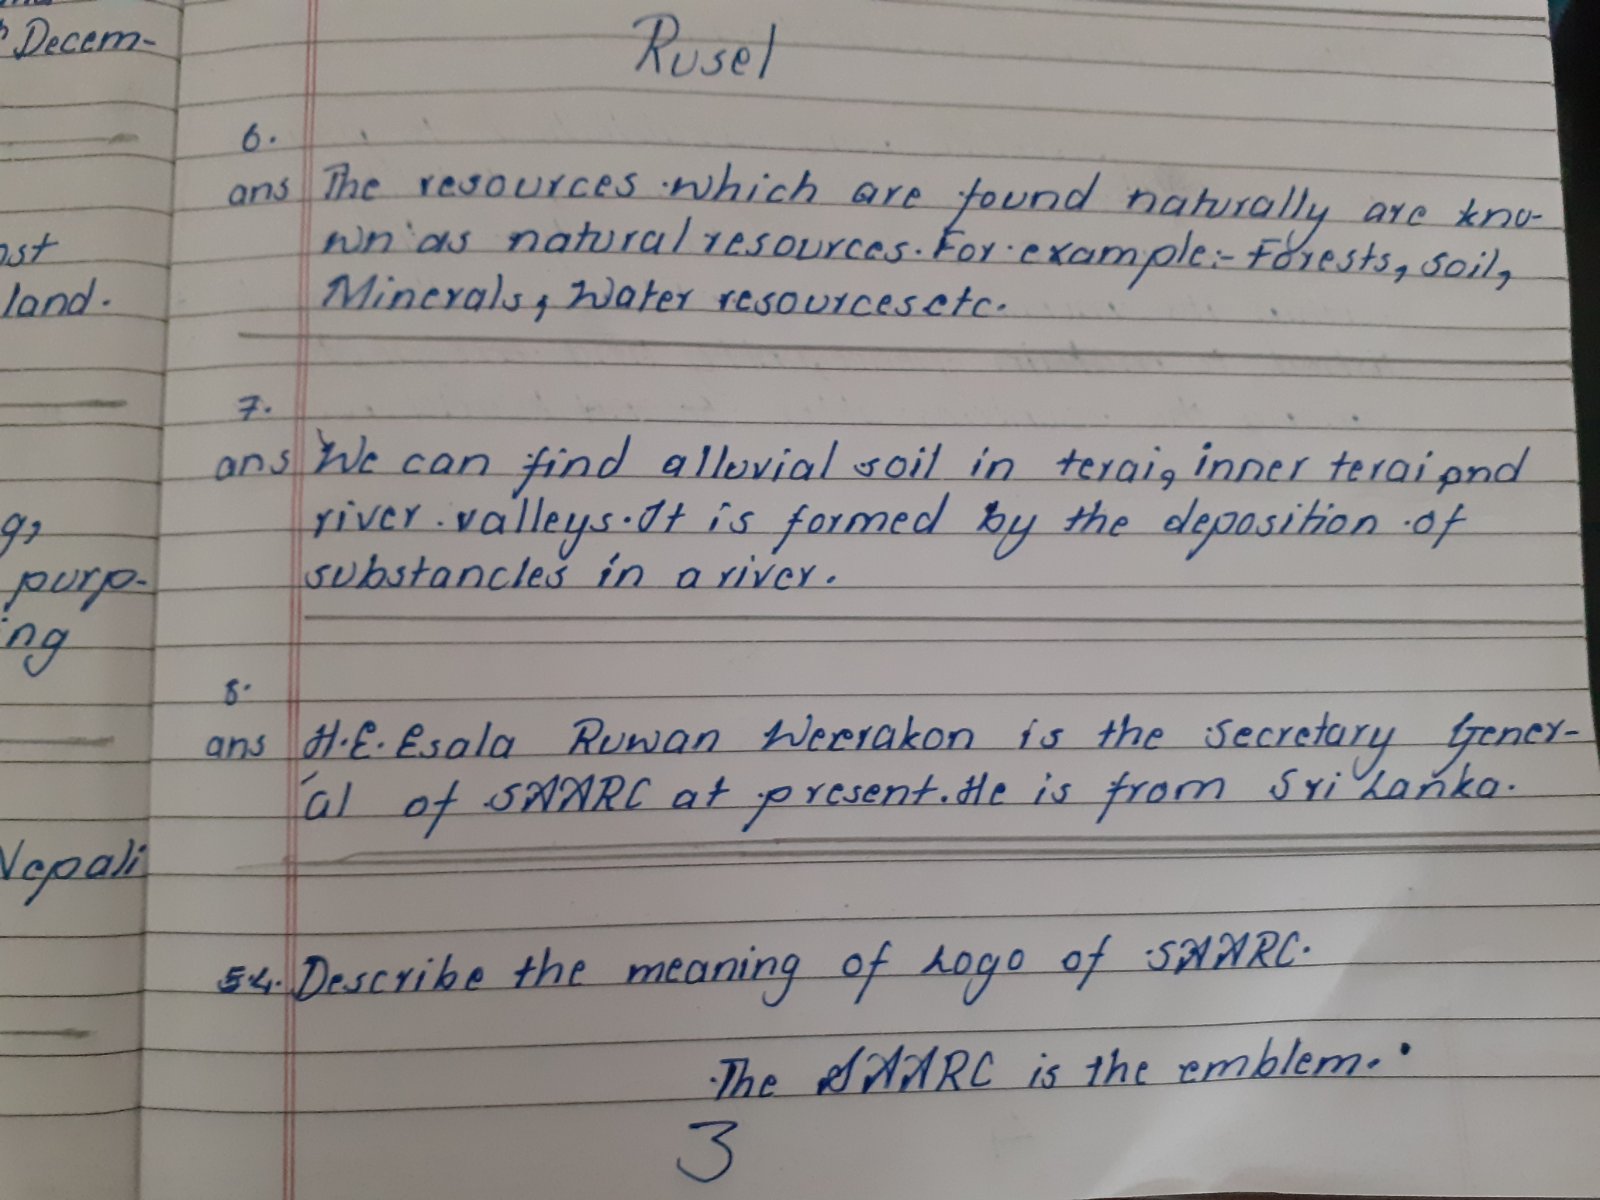 Decem-
ost
land.
g,
purp-
ing
Nepali
Rusel
6.
ans The resources which are found naturally are kno-
wn as natural resources. For example:- Forests, soil,
Minerals, Water resources etc.
7.
ans We can find alluvial soil in terai, inner terai and
river valleys. It is formed by the deposition of
substancles in a river.
8.
ans H.E. Esala Ruwan Weerakon is the Secretary Gener-
al of SAARC at present. He is from Sri Lanka.
54. Describe the meaning of Logo of SAARC.
The SAARC is the emblem.
3